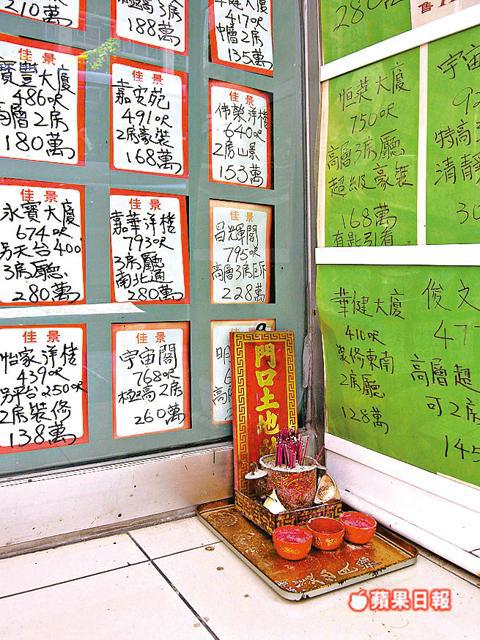 210萬
3房
188萬
417呎
中層2房
135萬
佳景
寶豐大廈
486呎
高層2房
180萬
佳景
嘉安苑
491呎
2房豪裝
168萬
佳景
偉榮洋樓
640呎
2房山景
153萬
佳景
永寶大廈
674呎
另天台400
3房廳
280萬
佳景
嘉華洋樓
793呎
3房廳
南北通
280萬
佳景
昌輝閣
795呎
高層3房
228萬
佳景
怡家洋樓
439呎
另平台250呎
2房裝修
138萬
佳景
宇宙閣
768呎
極高2房
260萬
明
280
恒英大廈
750呎
高層3房廳
超級豪裝
168萬
有匙引看
宇宙
特高3
清靜
華健大廈
410呎
裝修東南
2房廳
128萬
俊文
47
高層
可2房
145
門口土地
蘋果日報